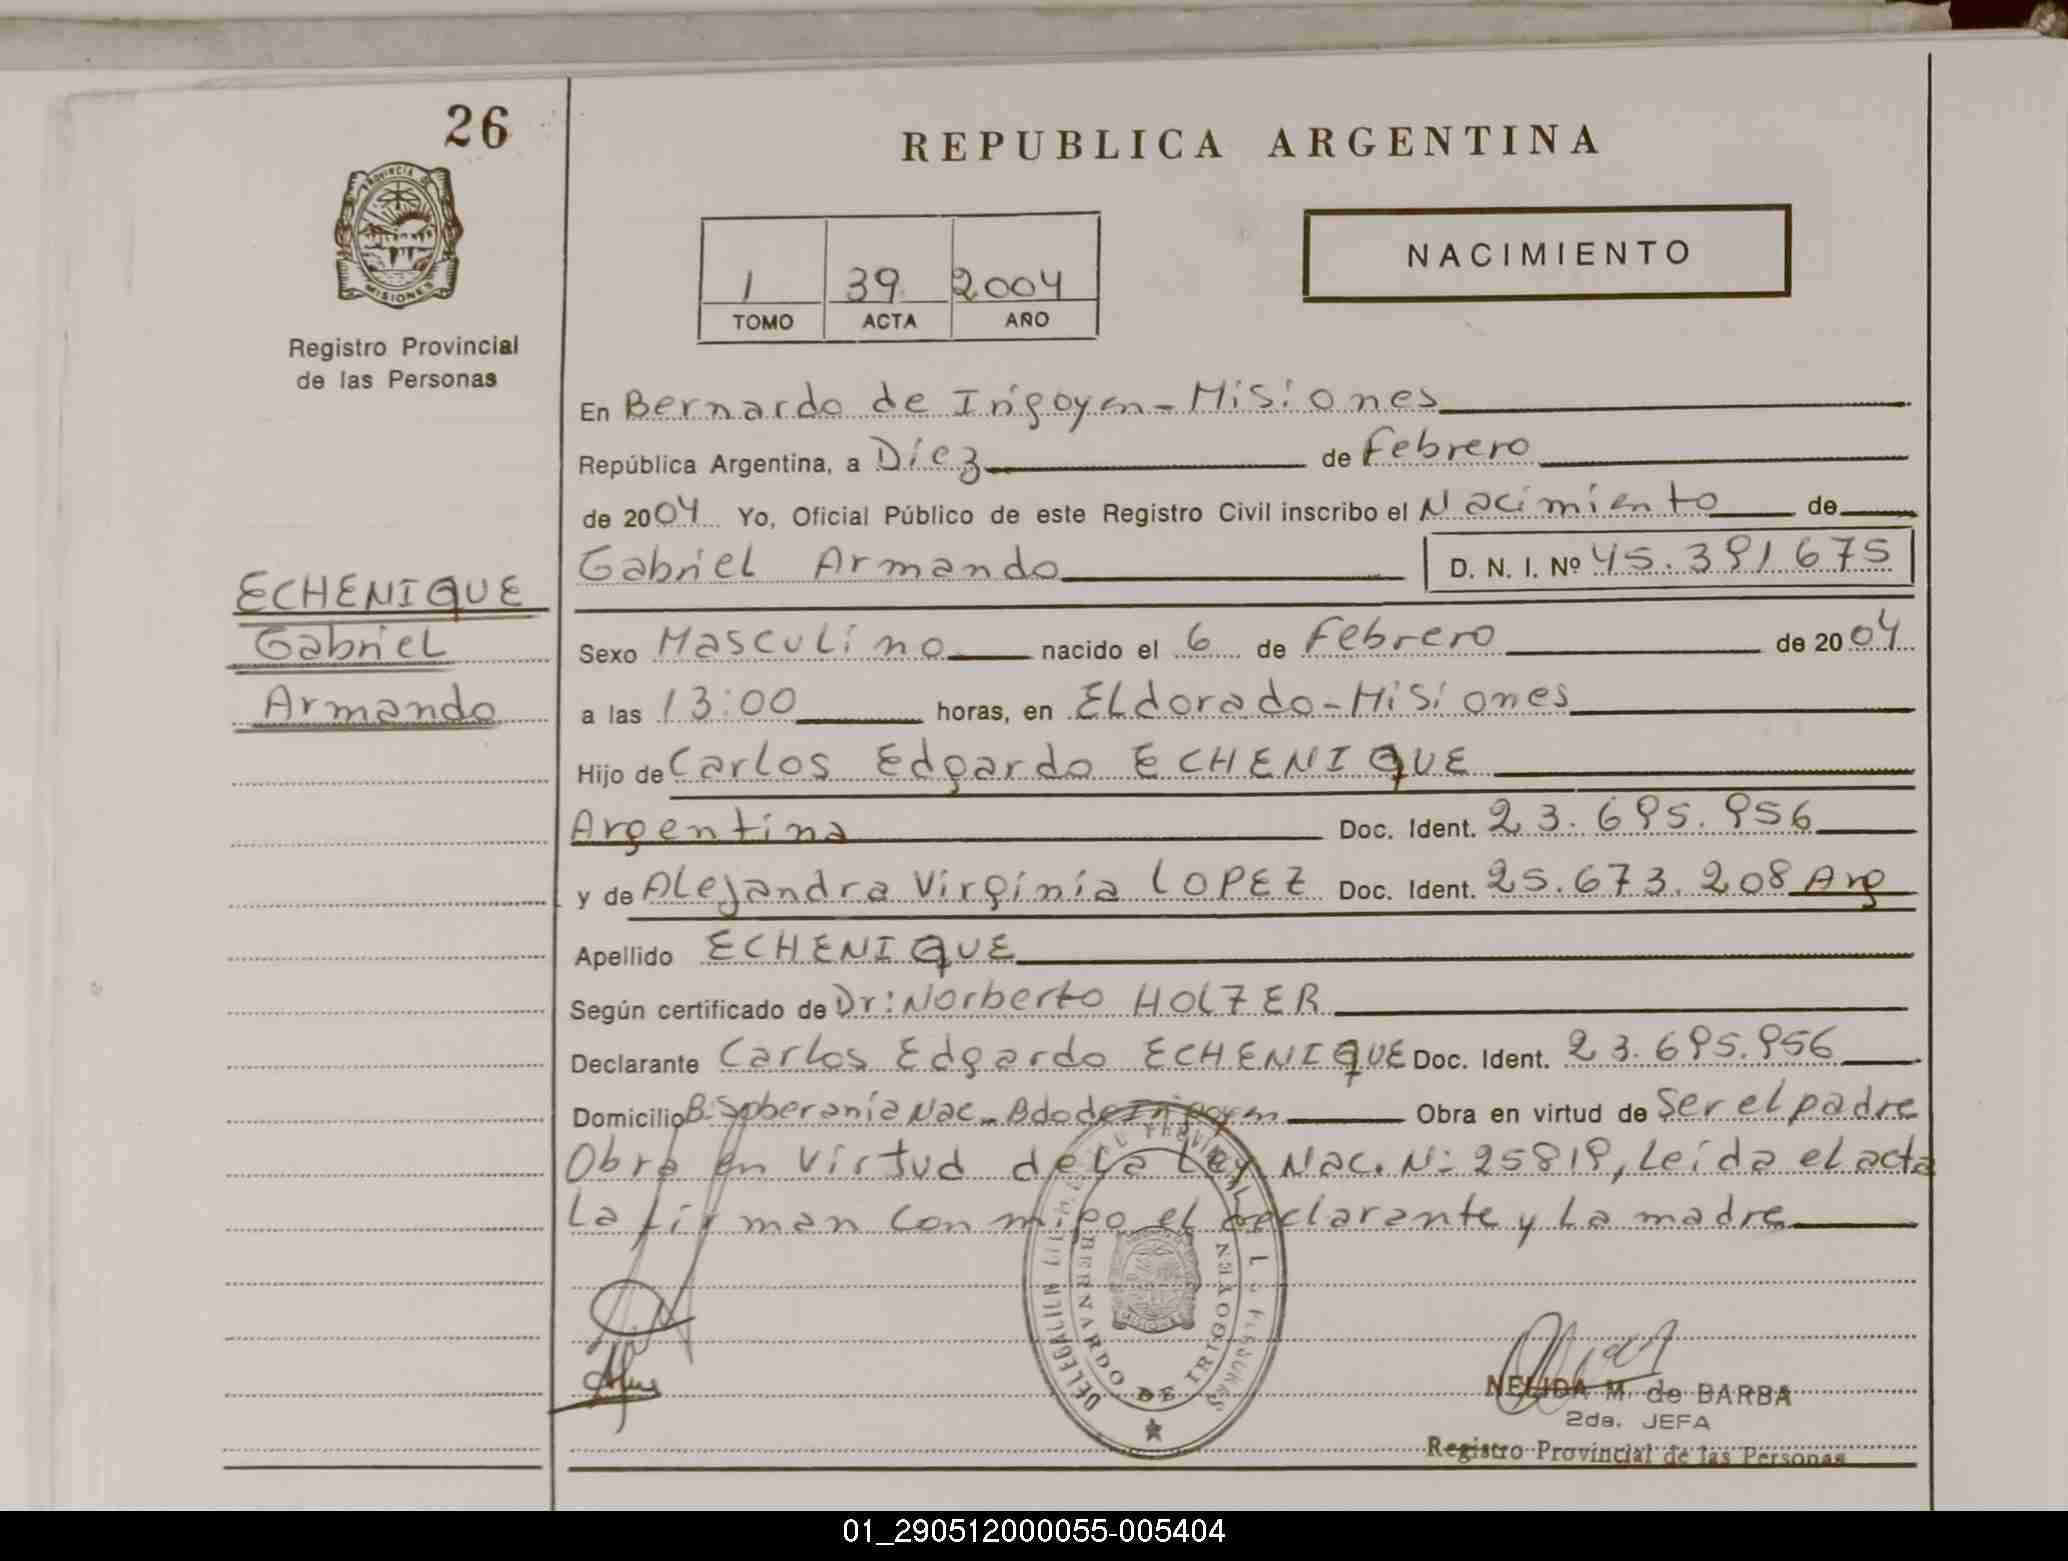 26
REPUBLICA ARGENTINA
PROVINCIA DE
MISIONES
NACIMIENTO
1 39 2004
TOMO ACTA AÑO
Registro Provincial
de las Personas
En Bernardo de Irigoyen - Misiones
República Argentina, a Diez de Febrero
de 2004 Yo, Oficial Público de este Registro Civil inscribo el Nacimiento de
Gabriel Armando D. N. I. Nº 45.391675
ECHENIQUE
Gabriel
Armando
Sexo Masculino nacido el 6 de Febrero de 2004
a las 13:00 horas, en Eldorado - Misiones
Hijo de Carlos Edgardo ECHENIQUE
Argentina Doc. Ident. 23.695.956
y de Alejandra Virginia LOPEZ Doc. Ident. 25.673.208 Arg
Apellido ECHENIQUE
Según certificado de Dr: Norberto HOLZER
Declarante Carlos Edgardo ECHENIQUE Doc. Ident. 23.695.956
Domicilio B. Soberanía Nac - Bdo de Irigoyen Obra en virtud de Ser el padre
Obra en Virtud de la Ley Nac. N: 25819, Leída el acta
La firman con migo el declarante y La madre
BERNARDO DE IRIGOYEN
NELIDA M. de BARBA
2da. JEFA
Registro Provincial de las Personas
01_290512000055-005404